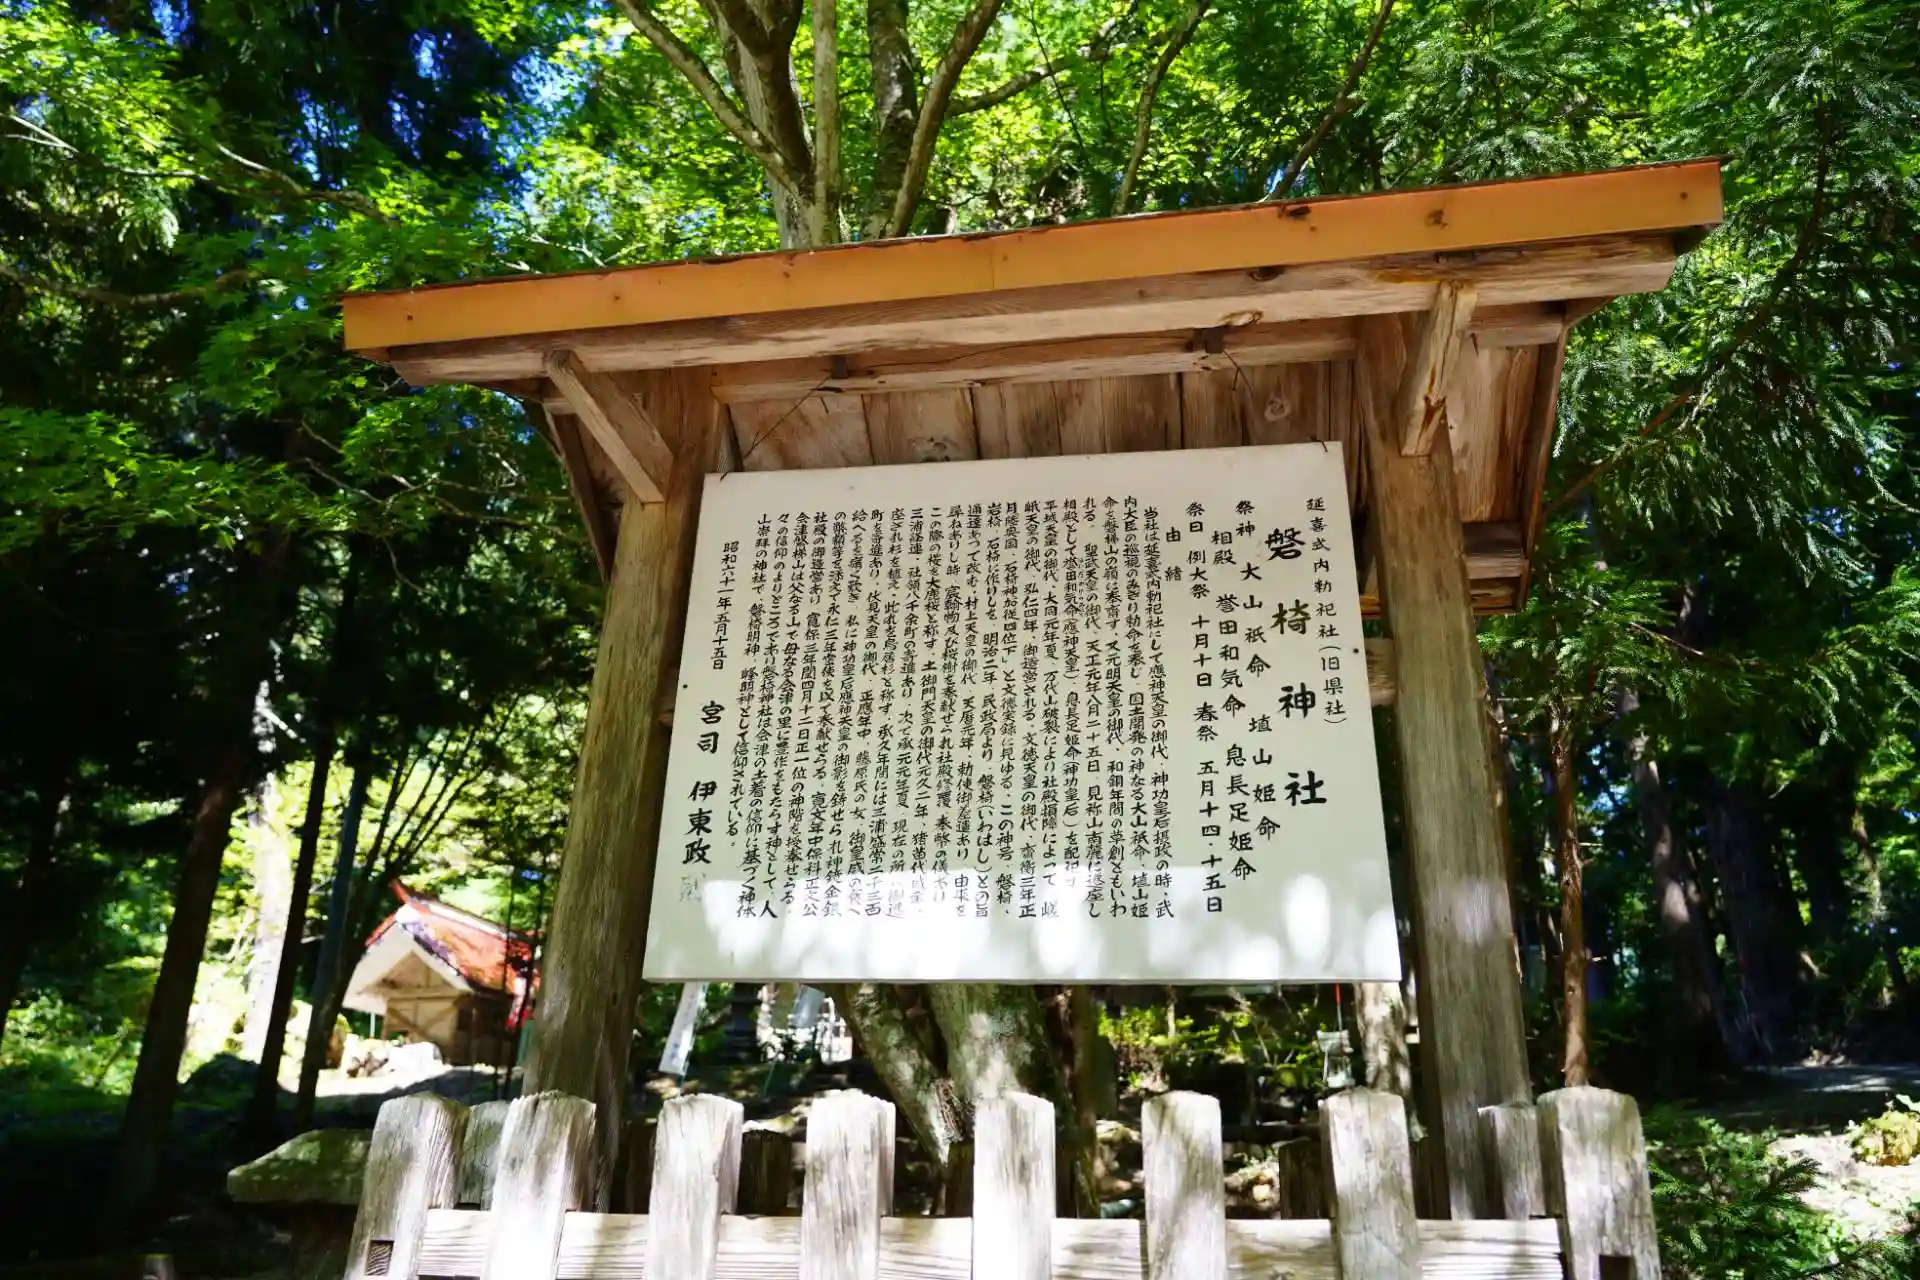 延喜式内勅祀社(旧県社)
磐椅神社
祭神 大山祇命 埴山姫命
相殿 誉田和気命 息長足姫命
祭日 例大祭 十月十日 春祭 五月十四・十五日
由緒
当社は延喜式内勅祀社にして應神天皇の御代、神功皇后摂政の時、武
内大臣の巡視のみぎり勅命を奉じ、国土開発の神なる大山祇命、埴山姫
命を磐梯山の嶺に奉斎す。又元明天皇の御代、和銅年間の草創ともいわ
れる。聖武天皇の御代、天平元年八月二十五日、見祢山南麓に遷座し
相殿として誉田和気命(應神天皇)、息長足姫命(神功皇后)を配祀す
平城天皇の御代、大同元年夏、万代山破裂により社殿損障によって、嵯
峨天皇の御代、弘仁四年、御造営される。文徳天皇の御代、斎衡三年正
月陸奥国、石椅神加従四位下」と文徳実録に見ゆる。この神号、磐椅、
岩椅、石椅に作りしを、明治二年、民政局より、磐椅(いわはし)との旨
通達あつて改む。村上天皇の御代、天暦元年、勅使御差遣あり、由来を
尋ねありし時、宸翰物及び桜樹を奉献せられ社殿修覆、奉幣の儀あり
この際の桜を大鹿桜と称す。土御門天皇の御代元久二年、猪苗代城主、
三浦経連、社領八千余町の寄進あり、次で承元元年夏、現在の所に御遷
座され杉を植え、此れを鳥居杉と称す。承久年間には三浦盛常二千三百
町を寄進あり、伏見天皇の御代、正應年中、藤原氏の女、御皇威の衰へ
給へるを痛く歎き、私に神功皇后應神天皇の御影を鋳せられ神鏡金銀
の幣帛等を添えて永仁三年官倭を以て奉献せらる。寛文年中保科正之公
社殿の御造営あり、寛保三年閏四月十二日正一位の神階を授奉せらる。
会津磐梯山は父なる山で母なる会津の里に豊作をもたらす神として、人
々の信仰のよりどころであり磐椅神社は会津の土着の信仰に基づく神体
山崇拝の神社で、磐椅明神、峰明神として信仰されている。
昭和六十一年五月十五日 宮司 伊東政